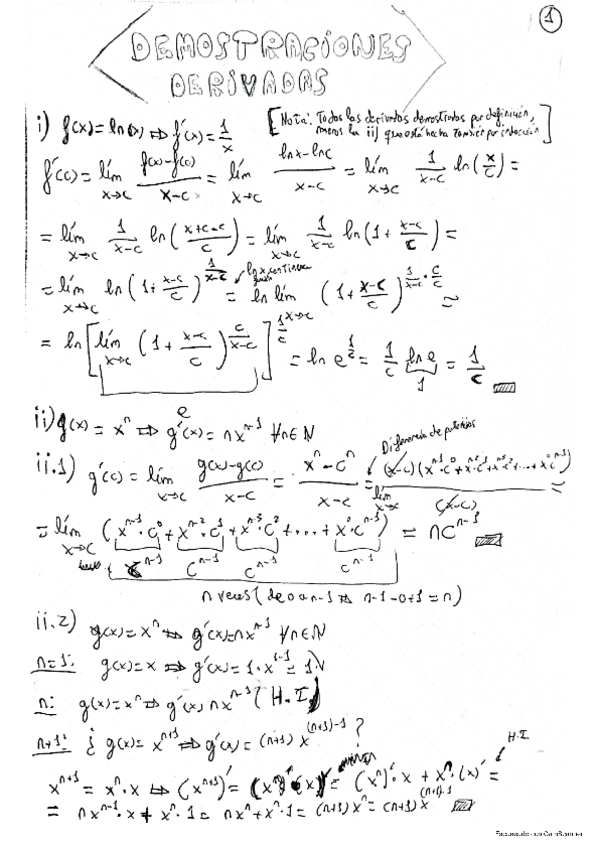 1
DEMOSTRACIONES
DERIVADAS
[Nota: Todas las derivadas demostradas por definición, menos la ii) que está hecha también por inducción]
i) f(x) = ln(x) ⇒ f'(x) = 1/x
f'(c) = lím_{x→c} (f(x)-f(c))/(x-c) = lím_{x→c} (lnx-lnc)/(x-c) = lím_{x→c} 1/(x-c) ln(x/c) =
= lím_{x→c} 1/(x-c) ln((x+c-c)/c) = lím_{x→c} 1/(x-c) ln(1+(x-c)/c) =
= lím_{x→c} ln(1+(x-c)/c)^{1/(x-c)} = ln lím_{x→c} (1+(x-c)/c)^{1/(x-c)·c/c} =
ln x continua
= ln[lím_{x→c} (1+(x-c)/c)^{c/(x-c)}]^{1/c} = ln e^{1/c} = 1/c ln e = 1/c
1
e
ii) g(x) = x^n ⇒ g'(x) = nx^{n-1} ∀n∈N
Diferencia de potencias
ii.1) g'(c) = lím_{x→c} (g(x)-g(c))/(x-c) = (x^n-c^n)/(x-c) = lím_{x→c} (x-c)(x^{n-1}·c^0+x^{n-2}·c^1+x^{n-3}c^2+...+x^0c^{n-1})/(x-c) =
= lím_{x→c} (x^{n-1}·c^0+x^{n-2}·c^1+x^{n-3}·c^2+...+x^0·c^{n-1}) = nc^{n-1}
c^{n-1} c^{n-1} c^{n-1} c^{n-1}
n veces (de 0 a n-1 ⇒ n-1-0+1 = n)
ii.2) g(x) = x^n ⇒ g'(x) = nx^{n-1} ∀n∈N
n=1: g(x) = x ⇒ g'(x) = 1·x^{1-1} = 1
n: g(x) = x^n ⇒ g'(x) nx^{n-1} (H.I)
n+1: ¿ g(x) = x^{n+1} ⇒ g'(x) = (n+1) x^{(n+1)-1} ?
H.I.
x^{n+1} = x^n·x ⇒ (x^{n+1})' = (x^n·x)' = (x^n)'·x + x^n·(x)' =
= nx^{n-1}·x + x^n·1 = nx^n+x^n·1 = (n+1)x^n = (n+1)x^{(n+1)-1}
Escaneado con CamScanner